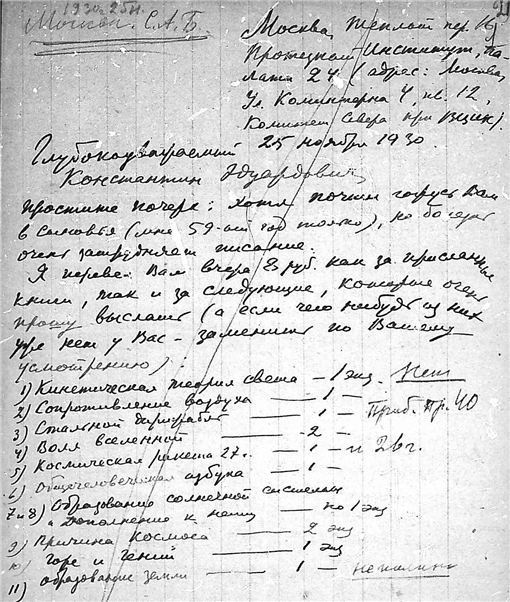 1930.25.XI.
С.А.Б.
Москва, Теплый пер. 16
Протезный Институт, Па-
лата 24 (адрес: Москва,
Ул. Коминтерна 4, кв. 12,
Комитет Севера при ВЦИК).
25 ноября 1930.
Глубокоуважаемый
Константин Эдуардович,
простите почерк: хотя почти гожусь Вам
в сыновья (мне 59-ый год только), но болезнь
очень затрудняет писание.
Я перевел Вам вчера 8 руб. как за присланные
книги, так и за следующие, которые очень
прошу выслать (а если чего нибудь из них
уже нет у Вас - заменить по Вашему
усмотрению):
1) Кинетическая теория света — 1 экз. Нет
2) Сопротивление воздуха — 1 —
3) Стальной дирижабль — 1 — Приб. Пр. 40
4) Воля вселенной — 2 —
5) Космическая ракета 27 г. — 1 — и 26 г.
6) Общечеловеческая азбука — 1 —
7 и 8) Образование солнечной системы
и Дополнение к нему — по 1 экз
9) Причина Космоса — 2 экз
10) Горе и Гений — 1 экз
11) Образование земли — 1 —